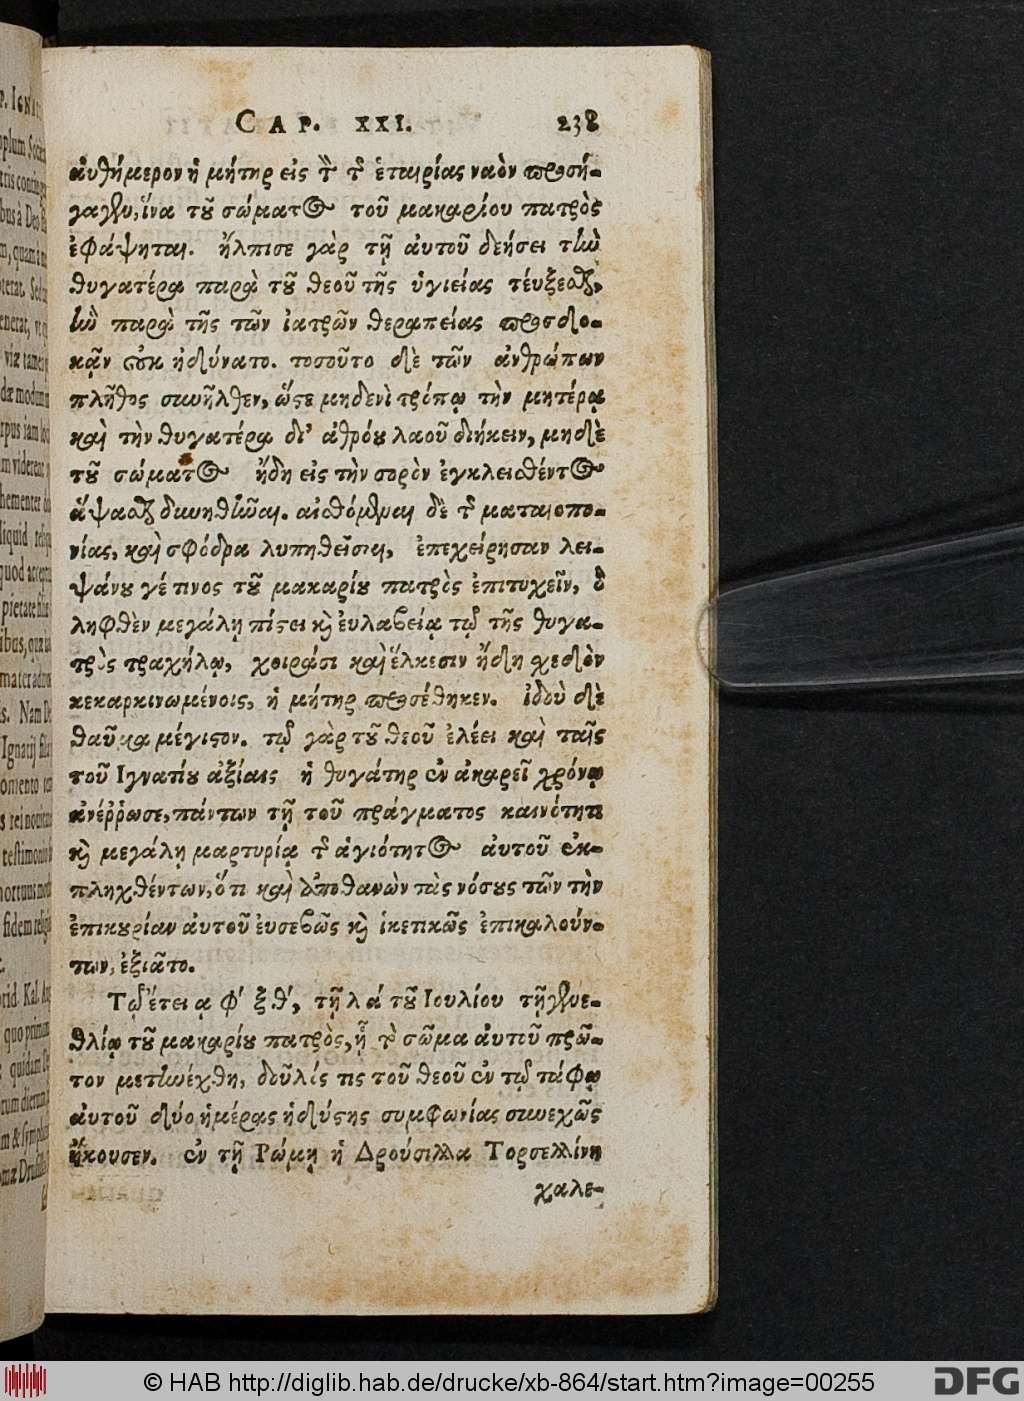 CAP. XXI. 238
ἀυθήμερον ἡ μήτηρ εἰς τὸν τῆς ἑταιρίας ναὸν προσή-
γαγεν, ἵνα τοῦ σώματος τοῦ μακαρίου πατρὸς
ἐφάψηται. ἤλπισε γὰρ τῇ ἀυτοῦ δεήσει τὴν
θυγατέρα παρὰ τοῦ θεοῦ τῆς ὑγιείας τέυξεσθαι,
ἣν παρὰ τῆς τῶν ἰατρῶν θεραπείας προσδο-
κᾷν οὐκ ἠδύνατο. τοσοῦτο δὲ τῶν ἀνθρώπων
πλῆθος συνῆλθεν, ὥςε μηδενὶ τρόπῳ τὴν μητέρα
καὶ τὴν θυγατέρα δι' ἀθρόου λαοῦ διήκειν, μηδὲ
τοῦ σώματος ἤδη εἰς τὴν σορὸν ἐγκλεισθέντος
ἅψασθαι δυνηθῶσι. αἰσθόμεναι δὲ τῆς ματαιοπο-
νίας, καὶ σφόδρα λυπηθεῖσαι, ἐπεχείρησαν λει-
ψάνου γέ τινος τοῦ μακαρίου πατρὸς ἐπιτυχεῖν, ὃ
ληφθὲν μεγάλῃ πίςει καὶ ἐυλαβείᾳ τῷ τῆς θυγα-
τρὸς τραχήλῳ, χοιράσι καὶ ἕλκεσιν ἤδη σχεδὸν
κεκαρκινωμένοις, ἡ μήτηρ προσέθηκεν. ἰδοὺ δὲ
θαῦμα μέγιςον. τῷ γὰρ τοῦ θεοῦ ἐλέει καὶ ταῖς
τοῦ Ιγνατίου ἀξίαις ἡ θυγάτηρ ἐν ἀκαρεῖ χρόνῳ
ἀνέῤῥωσε, πάντων τῇ τοῦ πράγματος καινότητι
καὶ μεγάλῃ μαρτυρίᾳ τῆς ἁγιότητος ἀυτοῦ ἐκ-
πληχθέντων, ὅτι καὶ ἀποθανὼν τὰς νόσους τῶν τὴν
ἐπικουρίαν ἀυτοῦ ἐυσεβῶς καὶ ἱκετικῶς ἐπικαλούν-
των, ἐξιᾶτο.
Τῷ ἔτει ᾳ φ' ξθ', τῇ λά τοῦ Ιουλίου τῇ γενε-
θλίῳ τοῦ μακαρίου πατρὸς, ᾗ τὸ σῶμα ἀυτοῦ πρῶ-
τον μετηνέχθη, δοῦλός τις τοῦ θεοῦ ἐν τῷ τάφῳ
ἀυτοῦ δύο ἡμέρας ἡδύςης συμφωνίας συνεχῶς
ἤκουσεν. ἐν τῇ Ρώμῃ ἡ Δρούσιλλα Τορσελλίνη
χαλε-
© HAB http://diglib.hab.de/drucke/xb-864/start.htm?image=00255
DFG